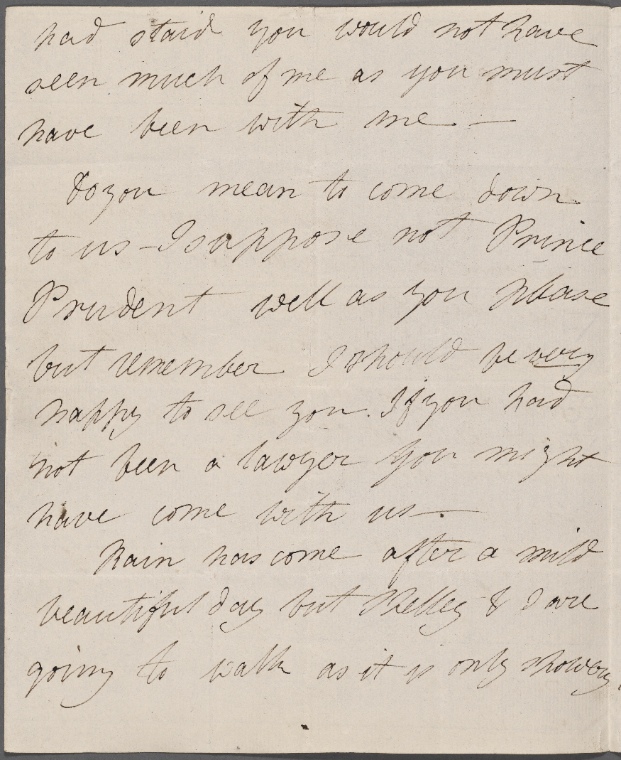 had staid you would not have
seen much of me as you must
have been with me —
Do you mean to come down
to us – I suppose not Prince
Prudent well as you please
but remember I should be very
happy to see you. If you had
not been a lawyer you might
have come with us —
Rain has come after a mild
beautiful day but Shelley & I are
going to walk as it is only showery.